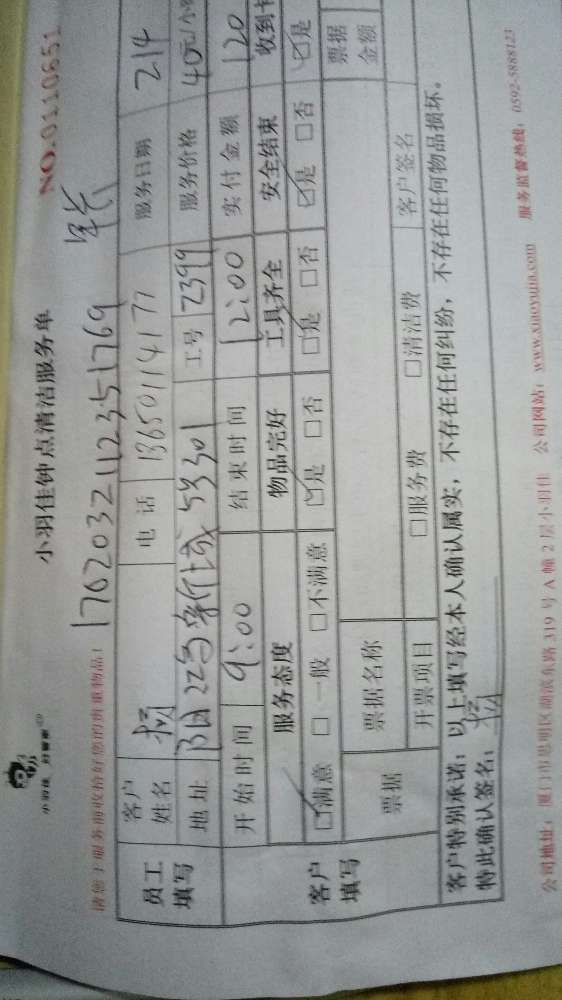 小羽佳 好管家
小羽佳钟点清洁服务单
NO.0110651
请您于服务前收拾好您的贵重物品!
1762032112351769
员工填写
客户姓名
电话 13650114177
服务日期 214
地址
工号 2399
服务价格 40元/小
开始时间 9:00
结束时间 12:00
实付金额 120
客户填写
服务态度 物品完好 工具齐全 安全结束 收到卡
☑满意 □一般 □不满意 ☑是 □否 ☑是 □否 ☑是 □否 ☑是
票据
票据名称
票据金额
开票项目 □服务费 □清洁费
客户签名
客户特别承诺:以上填写经本人确认属实,不存在任何纠纷,不存在任何物品损坏。
特此确认签名:
公司地址:厦门市思明区湖滨东路 319 号 A 幢 2 层小羽佳 公司网站:www.xiaoyujia.com 服务监督热线:0592-5888123